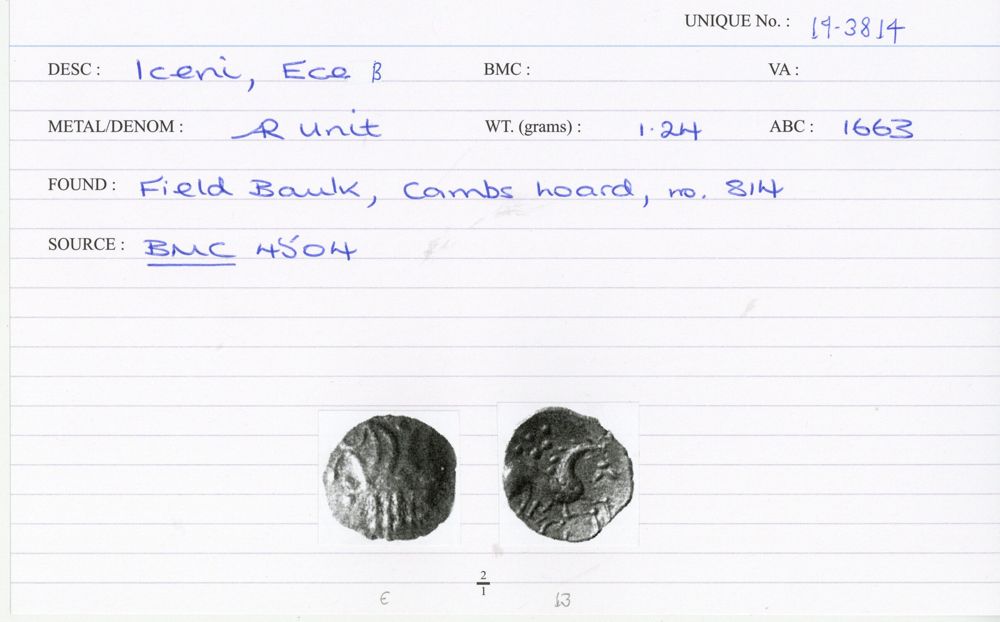 UNIQUE No. : 19-3814
DESC : Iceni, Ece β BMC : VA :
METAL/DENOM : AR unit WT. (grams) : 1.24 ABC : 1663
FOUND : Field Baulk, Cambs hoard, no. 814
SOURCE : BMC 4504
2
1
E 13